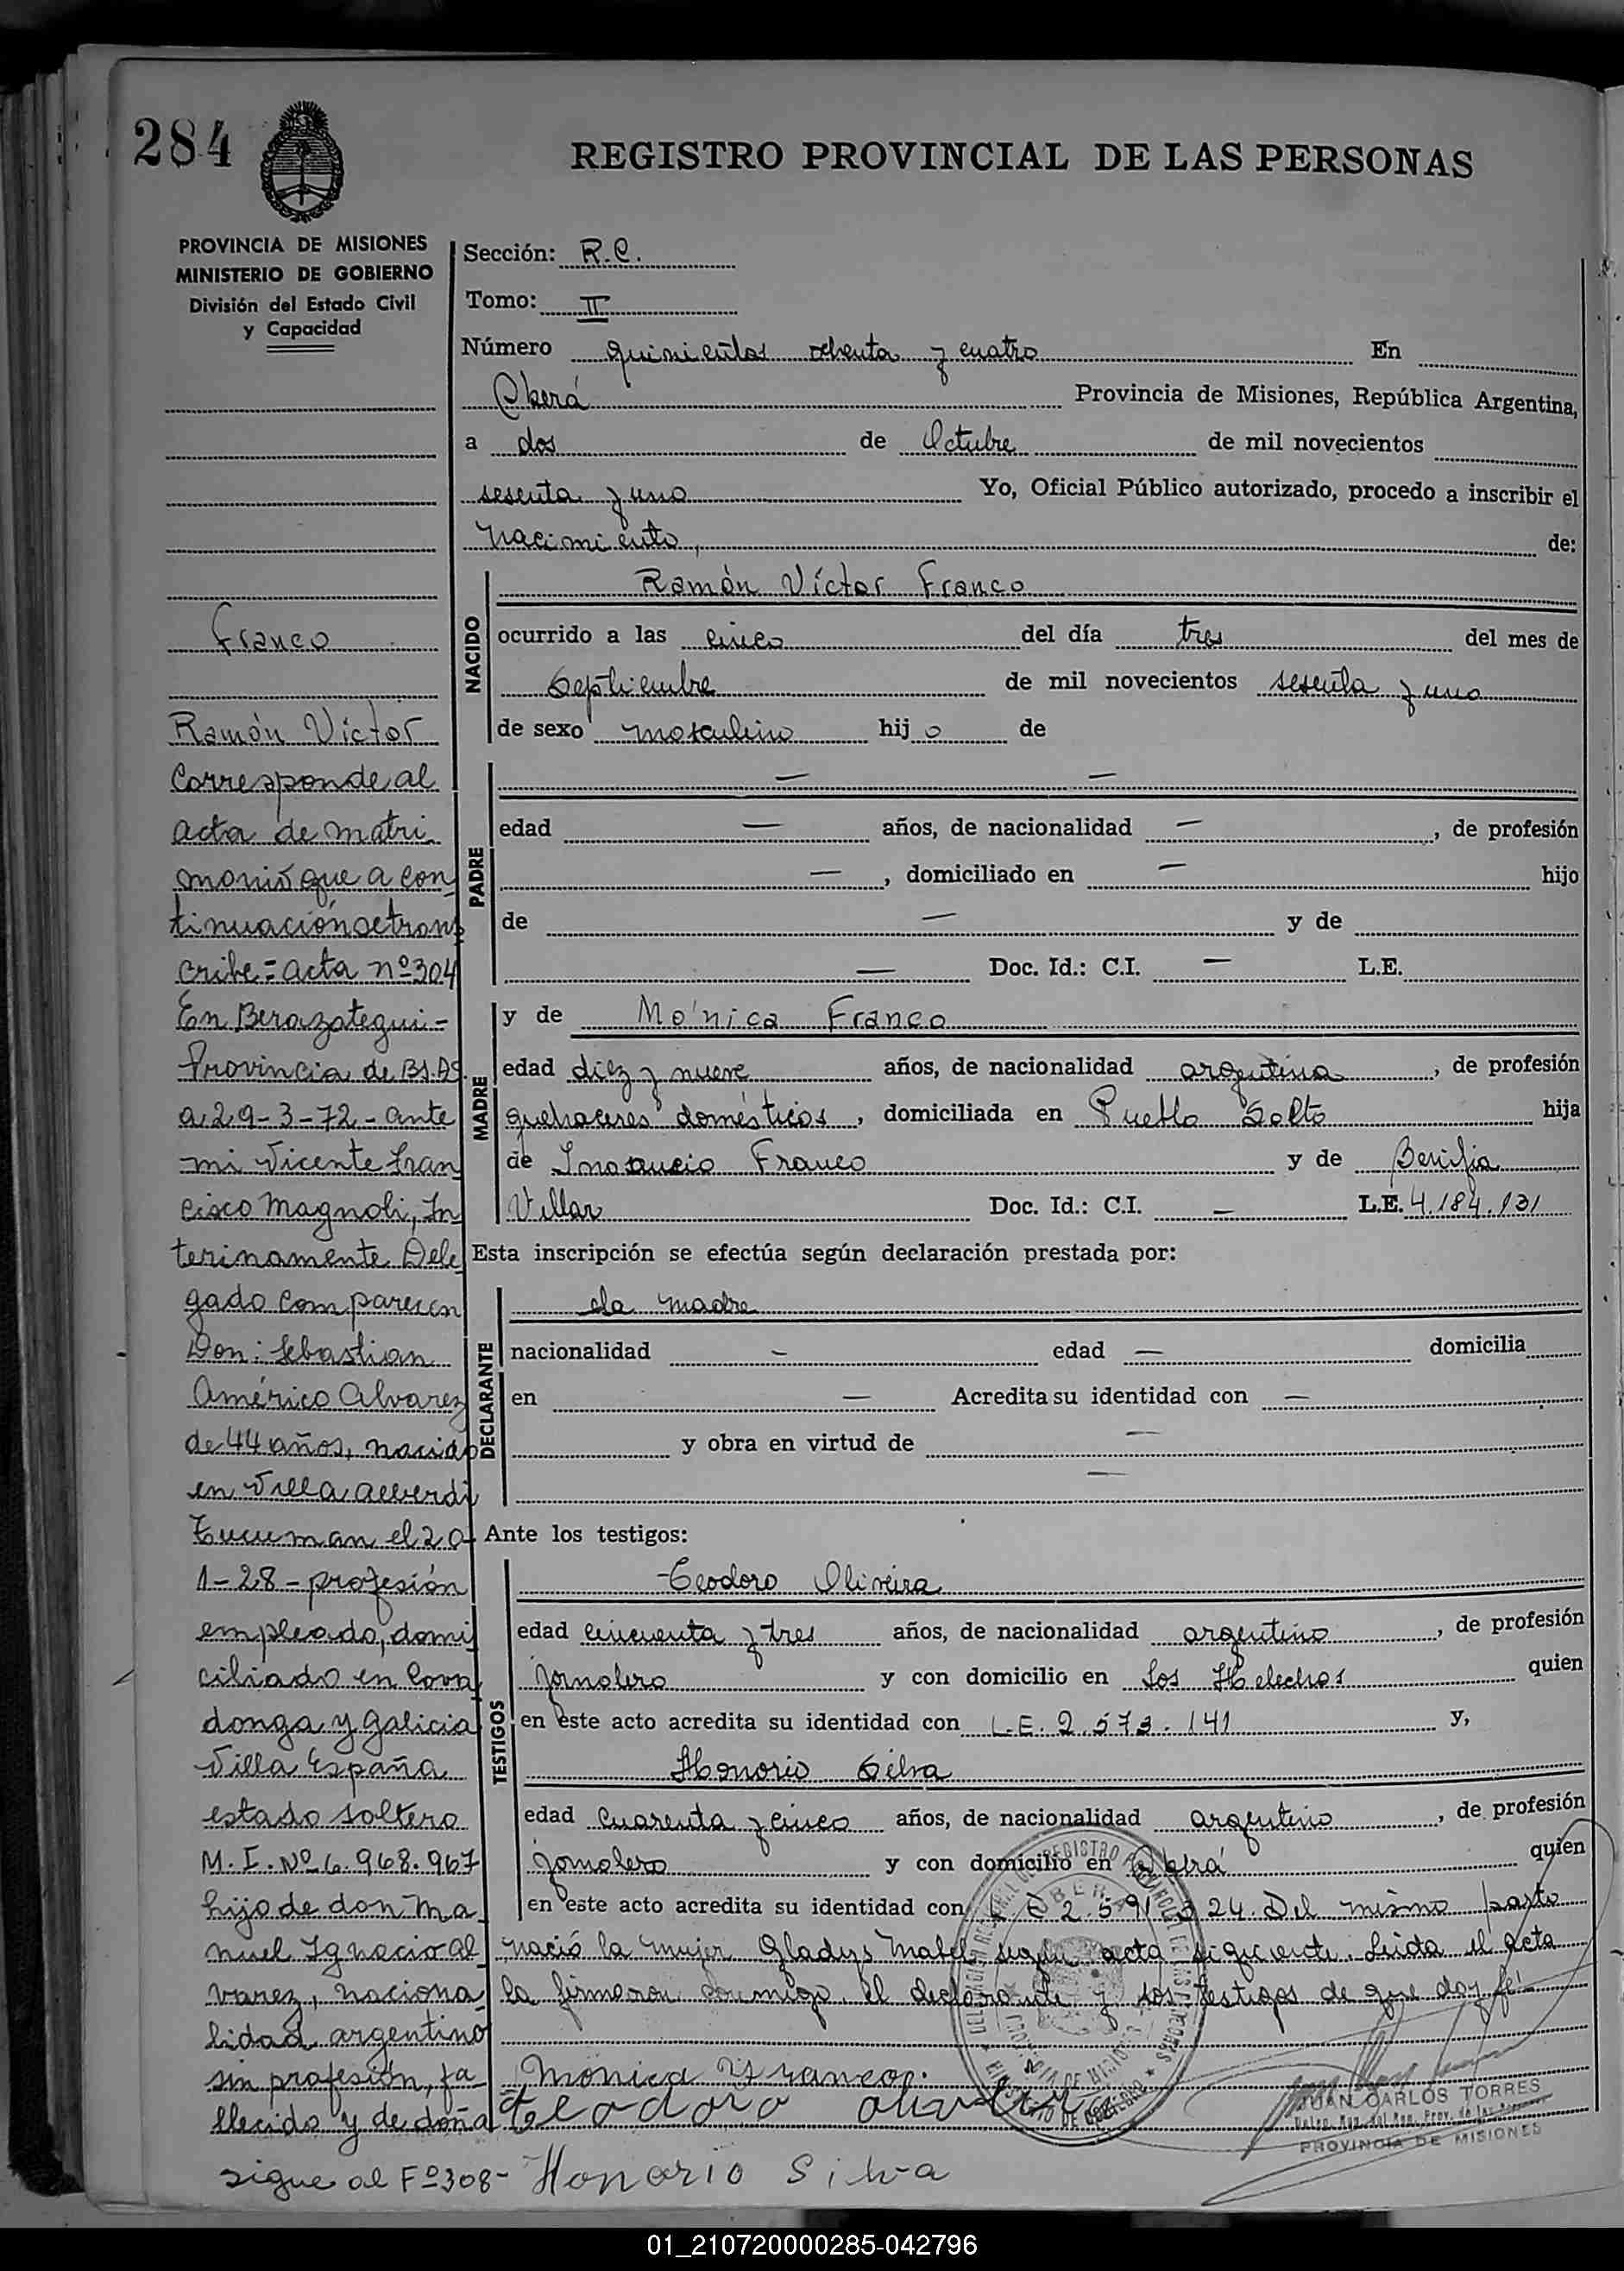 284
REGISTRO PROVINCIAL DE LAS PERSONAS
PROVINCIA DE MISIONES
MINISTERIO DE GOBIERNO
División del Estado Civil
y Capacidad
Franco
Ramón Víctor
Corresponde al
acta de matri
monio que a con
tinuación se trans
cribe = acta nº 304
En Berazategui -
Provincia de Bs. As.
a 29-3-72 - ante
mi Vicente Fran
cisco Magnoli, In
terinamente Dele
gado comparecen
Don: Sebastian
Américo Alvarez
de 44 años, nacido
en Villa Alberdi
Tucuman el 20-
1-28 - profesión
empleado, domi
ciliado en Cova
donga y Galicia
Villa España
estado soltero
M. I. Nº 6.968.967
hijo de don Ma
nuel Ignacio Al
varez, naciona
lidad argentino
sin profesión, fa
llecido y de doña
sigue al Fº 308-
Sección: R.C.
Tomo: II
Número quinientos ochenta y cuatro En
Oberá Provincia de Misiones, República Argentina,
a dos de Octubre de mil novecientos
sesenta y uno Yo, Oficial Público autorizado, procedo a inscribir el
nacimiento, de:
NACIDO
Ramón Víctor Franco
ocurrido a las cinco del día tres del mes de
Septiembre de mil novecientos sesenta y uno
de sexo masculino hijo de
PADRE
— —
edad — años, de nacionalidad — , de profesión
— , domiciliado en — hijo
de — y de
— Doc. Id.: C.I. — L.E.
MADRE
y de Mónica Franco
edad diez y nueve años, de nacionalidad argentina, de profesión
quehaceres domésticos, domiciliada en Puerto Salto hija
de Franco y de
Villar Doc. Id.: C.I. — L.E. 4.184.131
Esta inscripción se efectúa según declaración prestada por:
DECLARANTE
la madre
nacionalidad — edad — domicilia
en — Acredita su identidad con —
y obra en virtud de —
—
Ante los testigos:
TESTIGOS
Teodoro Oliveira
edad cincuenta y tres años, de nacionalidad argentino, de profesión
jornalero y con domicilio en Los Helechos quien
en este acto acredita su identidad con L.E. 2.573.141 y,
Honorio Silva
edad cuarenta y cinco años, de nacionalidad argentino, de profesión
jornalero y con domicilio en Oberá quien
en este acto acredita su identidad con L.E. 2.591.324. Del mismo parto
nació la mujer Gladys Mabel según acta siguiente. Leida el acta
la firmaron conmigo, el declarante y los testigos de que doy fé.
Monica Franco.
teodoro
Honorio Silva
JUAN CARLOS TORRES
PROVINCIA DE MISIONES
01_210720000285-042796